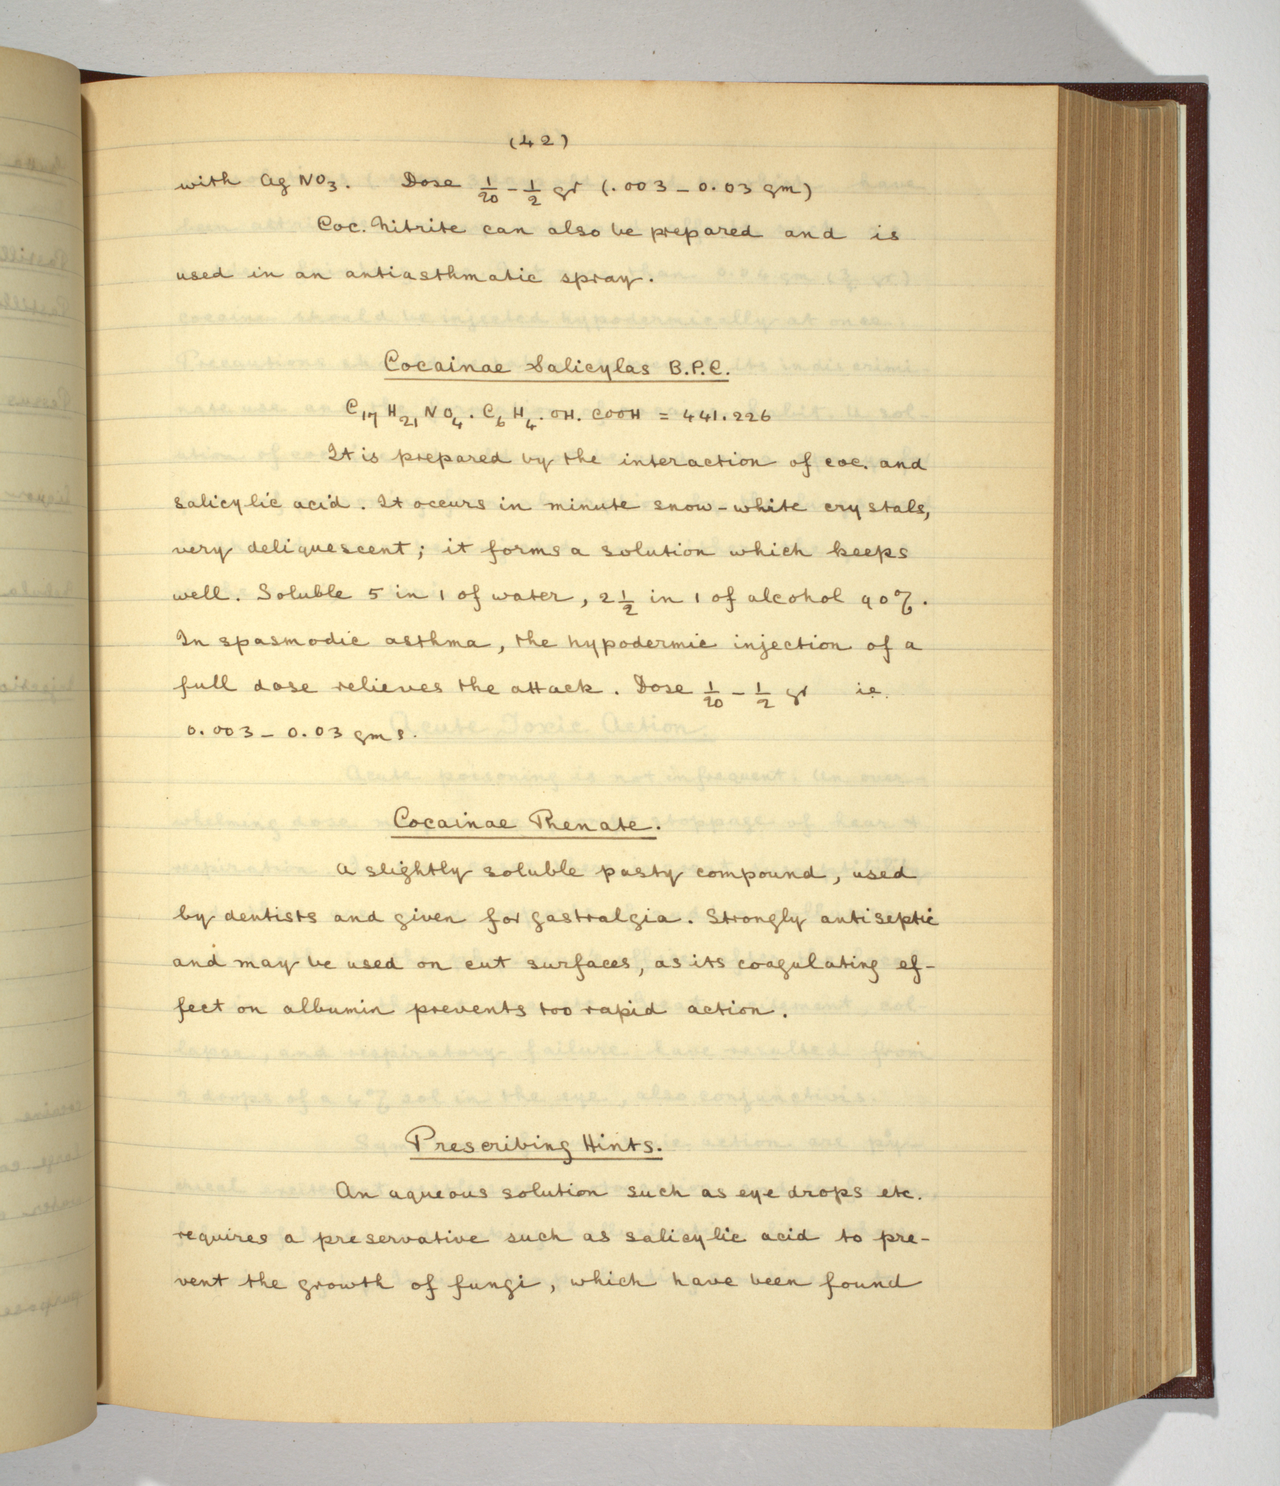 (42)
with Ag NO3. Dose 1/20 - 1/2 gr (.003 - 0.03 gm)
Coc. Nitrite can also be prepared and is
used in an antiasthmatic spray.
Cocainae Salicylas B.P.C.
C17 H21 NO4. C6 H4. OH. COOH = 441.226
It is prepared by the interaction of coc. and
salicylic acid. It occurs in minute snow-white crystals,
very deliquescent; it forms a solution which keeps
well. Soluble 5 in 1 of water, 2 1/2 in 1 of alcohol 90%.
In spasmodic asthma, the hypodermic injection of a
full dose relieves the attack. Dose 1/20 - 1/2 gr ie.
0.003 - 0.03 gms.
Cocainae Phenate.
A slightly soluble pasty compound, used
by dentists and given for gastralgia. Strongly antiseptic
and may be used on cut surfaces, as its coagulating ef-
fect on albumin prevents too rapid action.
Prescribing Hints.
An aqueous solution such as eye drops etc.
requires a preservative such as salicylic acid to pre-
vent the growth of fungi, which have been found